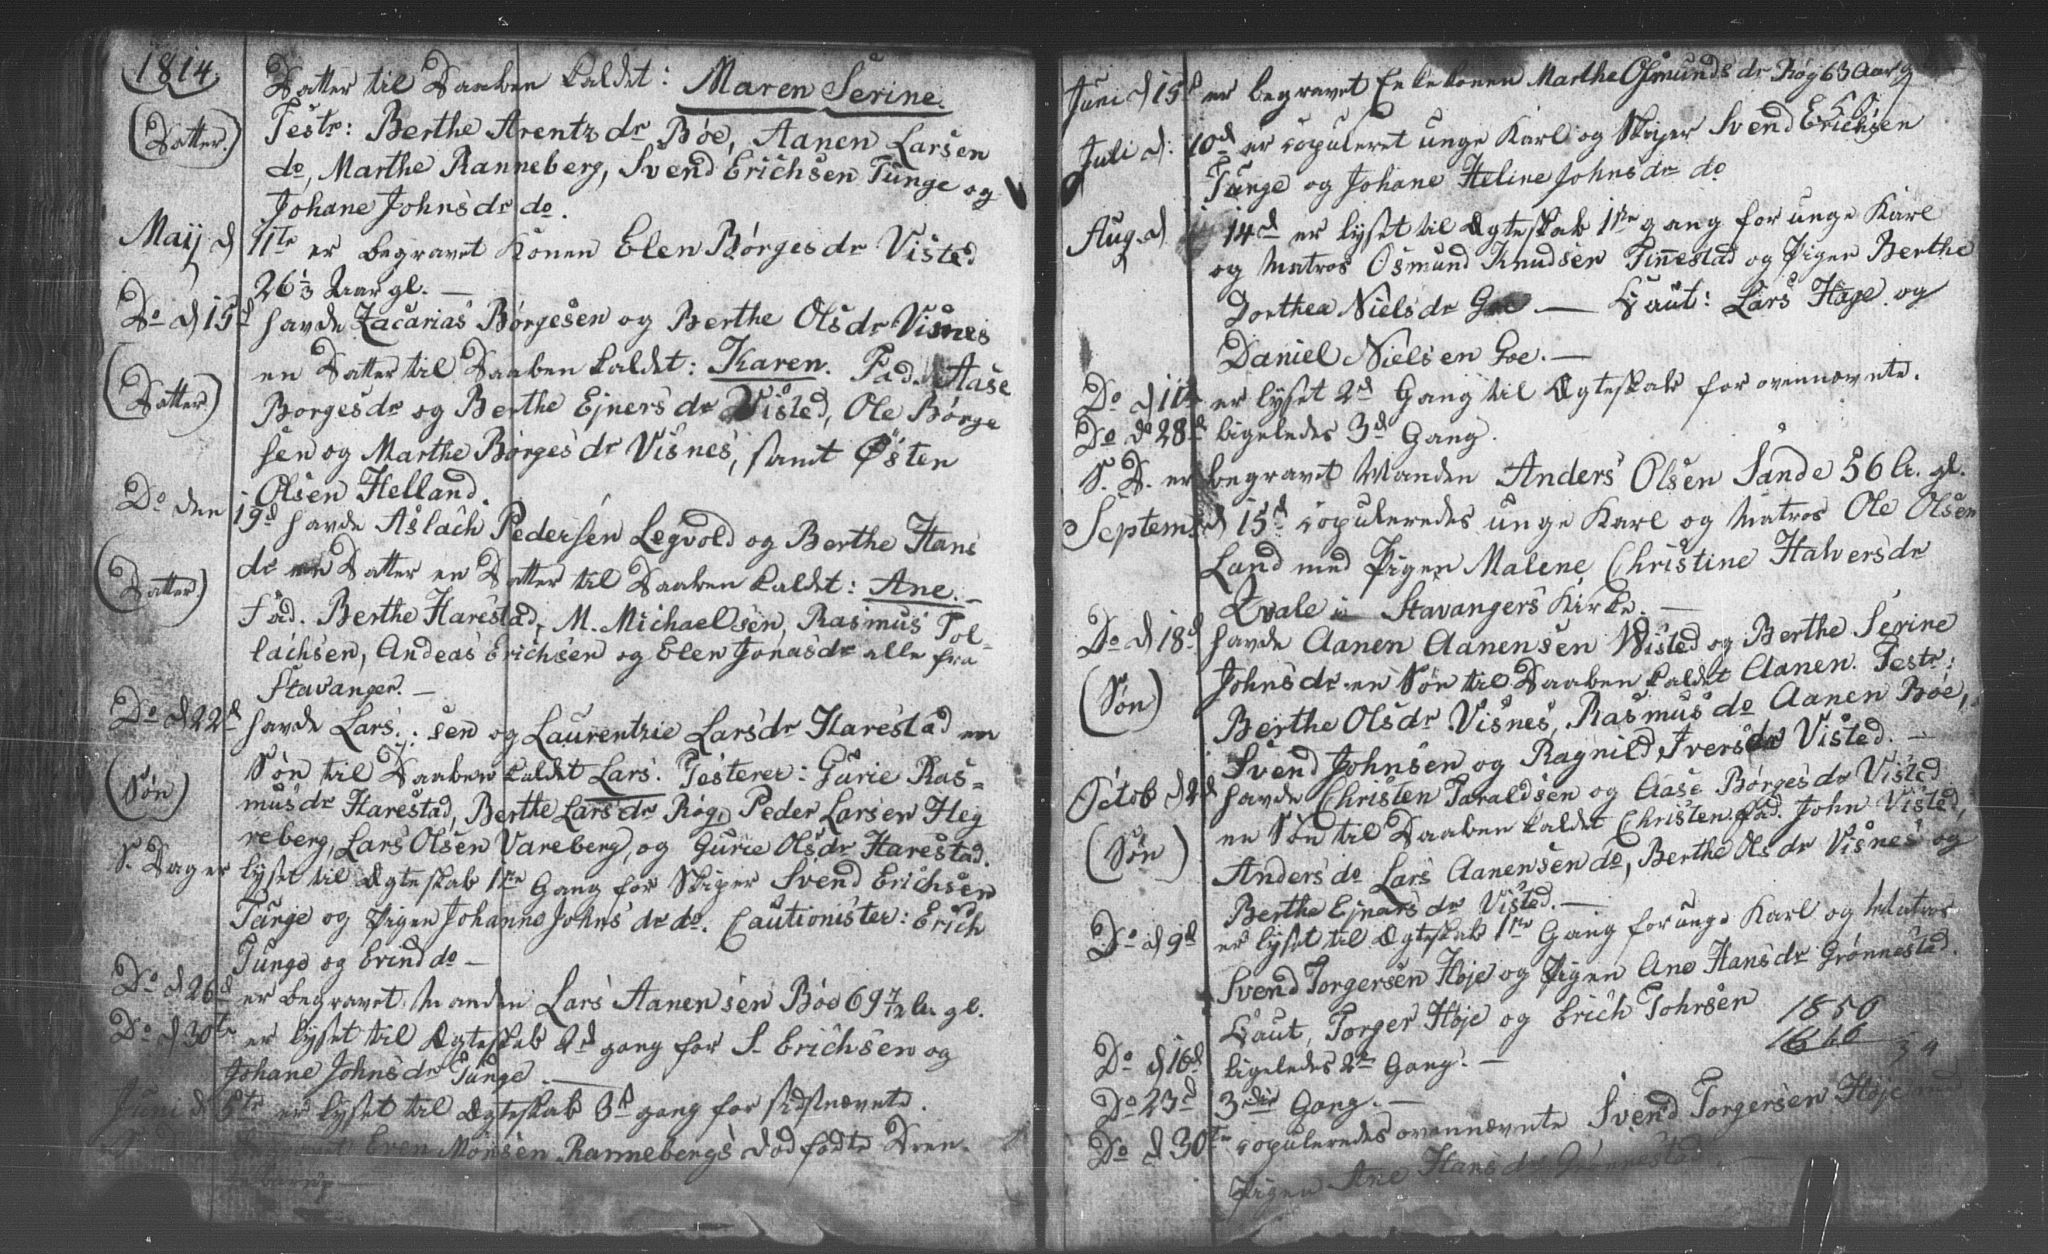 1814.
Datter til Daaben kaldet: Maren Serine.
(Datter.)
Testr: Berthe Arentz dr Bøe, Aanen Larsen
do, Marthe Ranneberg, Svend Erichsen Tunge og
Johane Johnsdr do.
Maij d 11te er begravet Konen Elen Børgesdr Visted
26 1/3 Aar gl. —
Do d 15d havde Zacarias Børgesen og Berthe Olsdr Visnes
en Datter til Daaben kaldet: Karen. Fad. Aase
(Datter)
Borgesdr og Berthe Ejnersdr Visted, Ole Børge
sen og Marthe Børgesdr Visnes, samt Østen
Olsen Helland.
Do den 19d havde Aslach Pedersen Legvold og Berthe Hans
dr en Datter en Datter til Daaben kaldet: Ane. —
(Datter.)
Fad. Berthe Harestad, M. Michaelsen, Rasmus Tol-
lachsen, Andeas Erichsen og Elen Jonasdr alle fra
Stavanger. —
Do d 22d havde Lars : sen og Laurentzie Larsdr Harestad en
Søn til Daaben kaldet Lars. Testerer: Gurie Ras=
(Søn)
musdr Harestad, Berthe Larsdr Røg, Peder Larsen Heg
reberg, Lars Olsen Vareberg, og Gurie Olsdr Harestad.
S. Dag er lyset til Ægteskab 1ste Gang for Skiper Svend Erichsen
Tunge og Pigen Johanne Johnsdr do. Cautionister: Erich
Tunge og Erind do —
Do d 26d er begravet Manden Lars Aanensen Bøe 69 1/2 A. gl.
Do d 30te er lyset til Ægteskab 2d gang for S. Erichsen og
Johane Johnsdr Tunge. —
Juni d 5te er lyset til Ægteskab 3d gang for sidstnævnte.
begravet Even Monsen Rannebergs dødfødte Dren-
Juni d 15d er begravet Enkekonen Marthe Osmundsdr Røg 63 Aar g
Juli d. 10d er copuleret unge Karl og Skiper Svend Erichsen
Tunge og Johane Heline Johnsdr do
Aug. d 14d er lyset til Ægteskab 1ste gang for unge Karl
og Matros Osmund Knudsen Tinnestad og Pigen Berthe
Dorthea Nielsdr Goe — Caut: Lars Hage og
Daniel Nielsen Goe. —
Do d er lyset 2d Gang til Ægteskab for ovennævnte.
Do d 28d ligeledes 3d Gang.
S. D. er begravet Manden Anders Olsen Sande 56 A. gl.
Septemb d 15d copuleredes unge Karl og Matros Ole Olsen
Land med Pigen Malene Christine Halversdr
Qvale i Stavangers Kirke. —
Do d 18d havde Aanen Aanensen Visted og Berthe Serine
Johnsdr en Søn til Daaben kaldet Aanen. Testr:
(Søn)
Berthe Olsdr Visnes, Rasmus do Aanen Bøe,
Svend Johnsen og Ragnild Iversdr Visted. —
Octob d 2d havde Christen Taraldsen og Aase Børgesdr Visted
en Søn til Daaben kaldet Christen. Fad. John Visted,
(Søn)
Anders do Lars Aanensen do, Berthe Olsdr Visnes og
Berthe Ejnarsdr Visted. —
Do d 9d er lyset til Ægteskab 1ste Gang for unge Karl og Matros
Svend Torgersen Høje og Pigen Ane Hansdr Grønnestad.
Caut, Torger Høje og Erich Tohrsen
1850
Do d 16d ligeledes 2den Gang. —
Do 23d 3die Gang. —
Do d 30te copuleredes ovennævnte Svend Torgersen Høje
Pigen Ane Hansdr Grønnestad. —